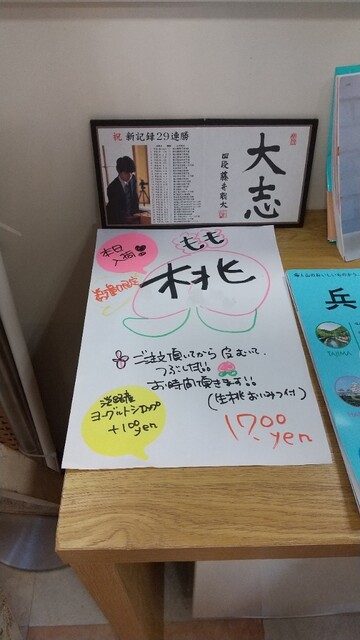 祝 新記録29連勝
大志
四段 藤井聡太
本日
入荷
もも
数量限定
桃
ご注文頂いてから皮むいて、
つぶします!!
お時間頂きます!!
(生桃おいみつ付)
淡路産
ヨーグルトシロップ
+100yen
1700
yen
兵
TAJIMA